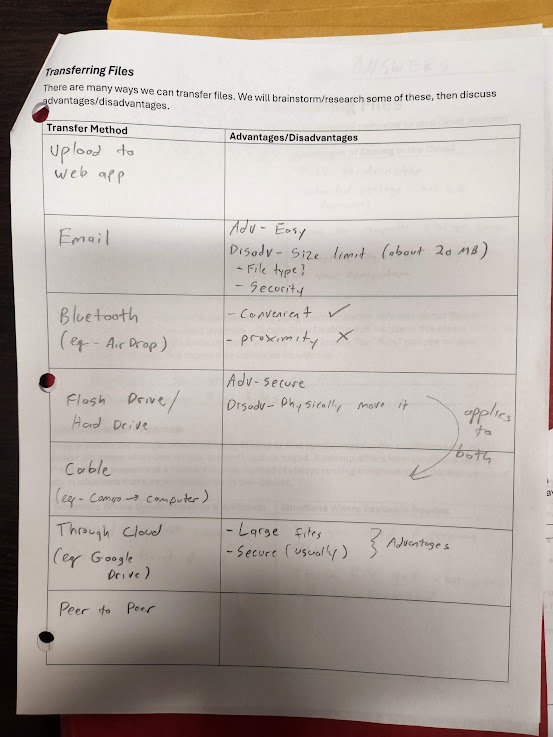 Transferring Files
There are many ways we can transfer files. We will brainstorm/research some of these, then discuss
advantages/disadvantages.
Transfer Method
Advantages/Disadvantages
Upload to
web app
Email
Adv - Easy
Disadv - Size limit (about 20 MB)
- File type?
- Security
Bluetooth
(eg - Air Drop)
- Convenient ✓
- proximity X
Flash Drive/
Hard Drive
Adv - secure
Disadv - Physically move it
applies
to
both
Cable
(eg - Camera → computer)
Through Cloud
(eg Google
Drive)
- Large files
- Secure (usually)
} Advantages
Peer to Peer